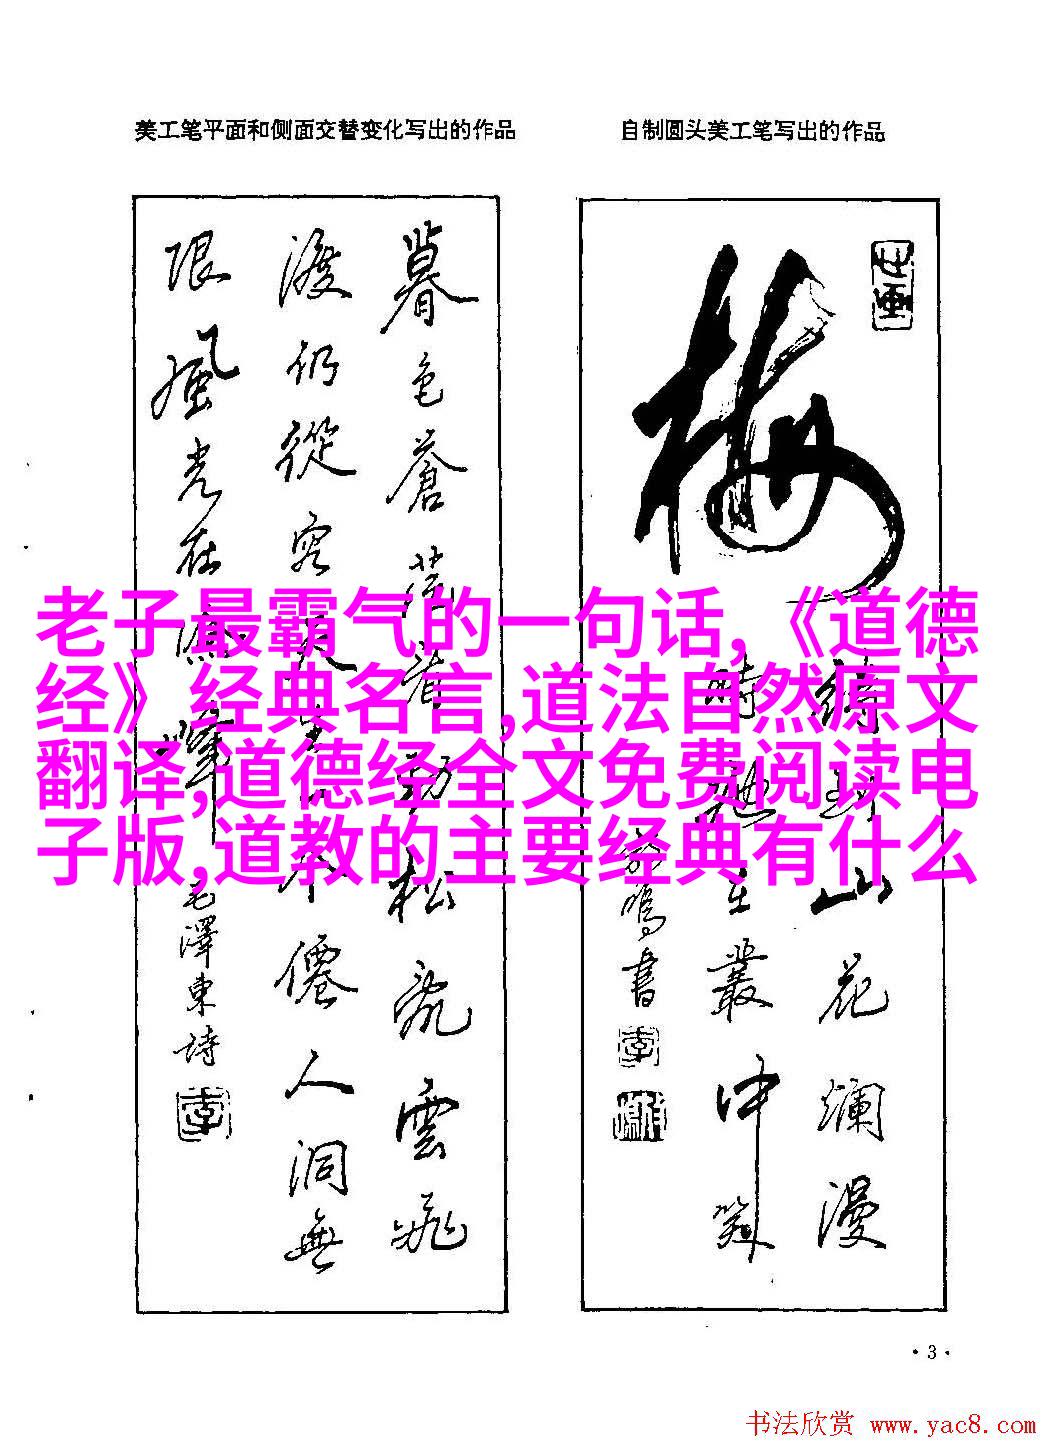 美工笔平面和侧面交替变化写出的作品
自制圆头美工笔写出的作品
暮色蒼茫看勁松亂雲飛
渡仍從容天生一个僊人洞無
限風光在險峰
毛澤東詩
梅
待到山花爛漫
時她在叢中笑
书
老子最霸气的一句话,《道德
经》经典名言,道法自然原文
翻译,道德经全文免费阅读电
子版,道教的主要经典有什么
·3·
书法欣赏 www.yac8.com